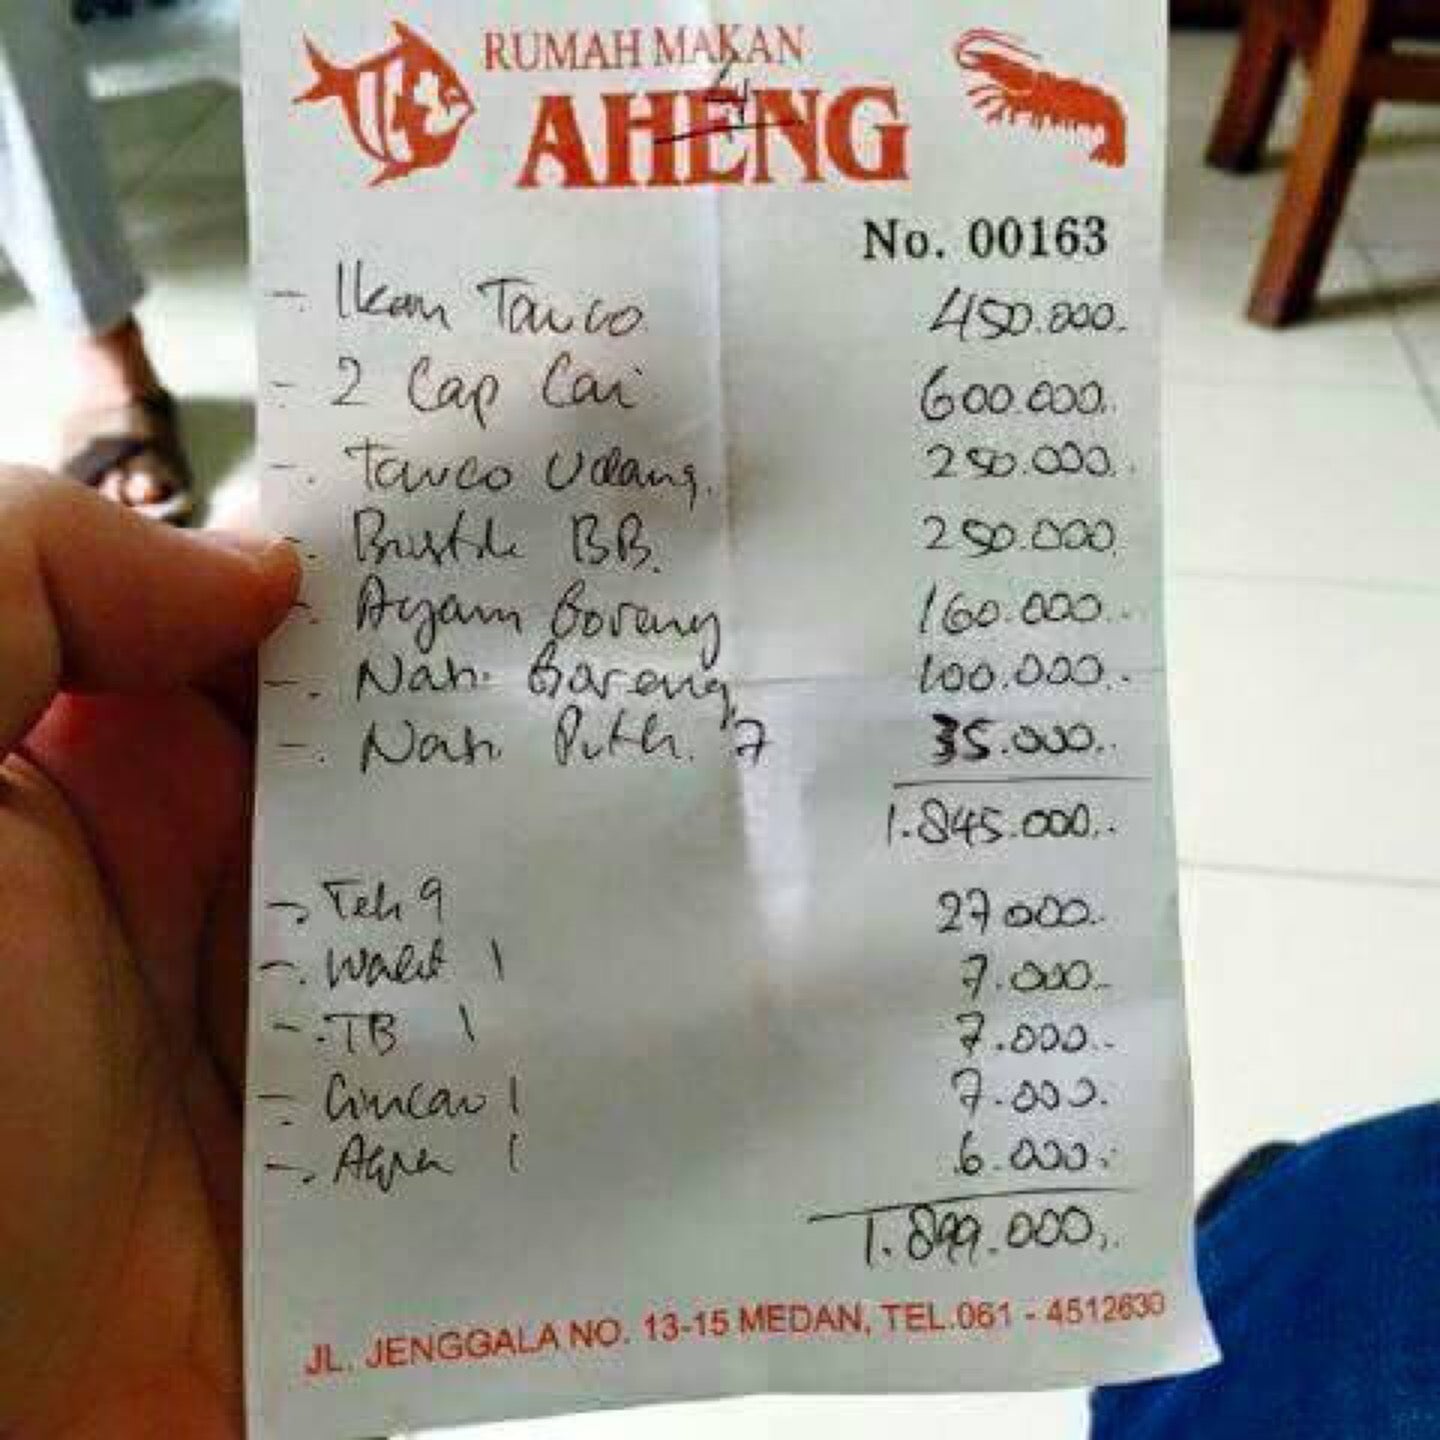 RUMAH MAKAN
AHENG
No. 00163
- Ikan Tauco 450.000.
- 2 Cap Cai 600.000.
- Tauco Udang. 250.000.
- BB. 250.000.
- Ayam Goreng 160.000.
- Nasi Goreng 100.000.
- Nasi Putih. 7 35.000.
1.845.000.
- Teh 9 27000.
- Walet 1 7.000.
- TB 1 7.000.
- Cincau 1 7.000.
- Aqua 1 6.000.
1.899.000.
JL. JENGGALA NO. 13-15 MEDAN, TEL.061 - 4512630